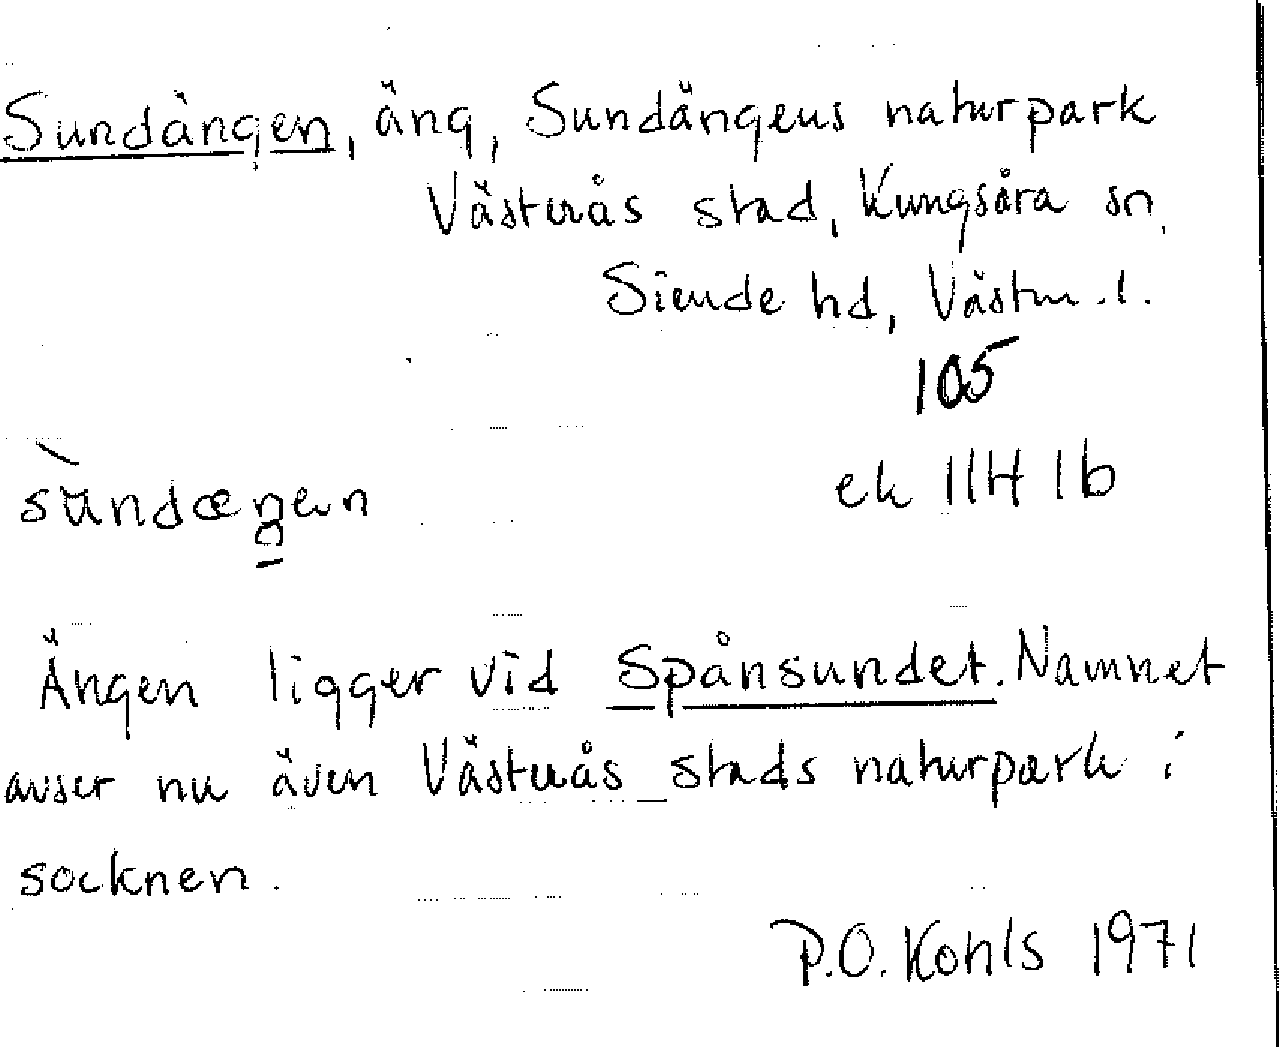 Sundängen, äng, Sundängens naturpark
Västerås stad, Kungsåra sn,
Siende hd, Västm. l.
105
ek 11H 1b
sùndæŋen
Ängen ligger vid Spånsundet. Namnet
avser nu även Västerås stads naturpark i
socknen.
P.O. Kohls 1971